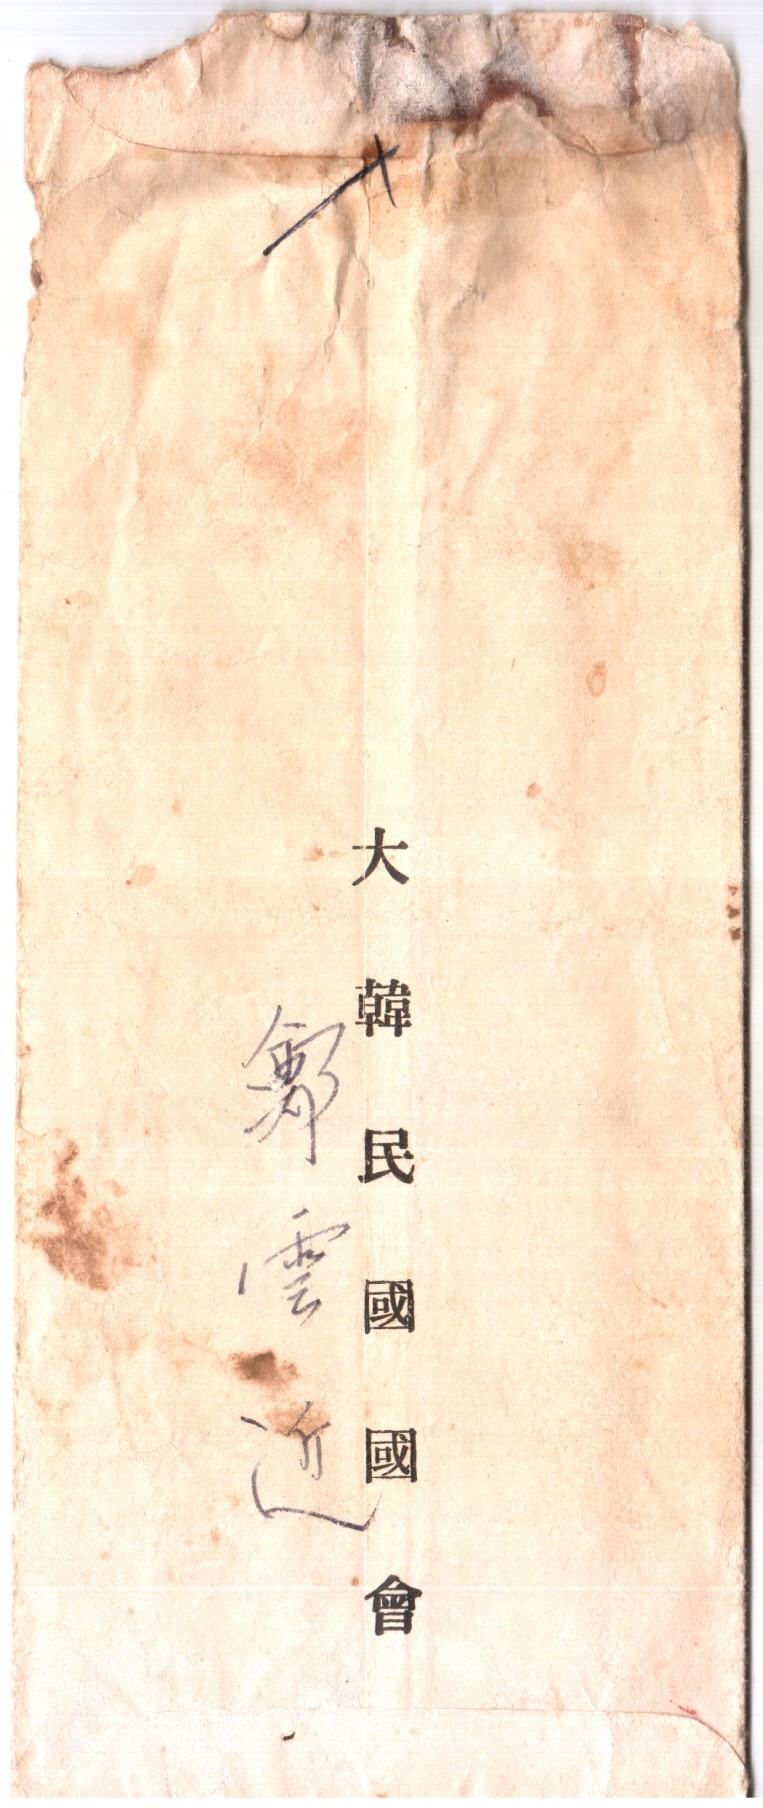 大韓民國國會
鄭雲近